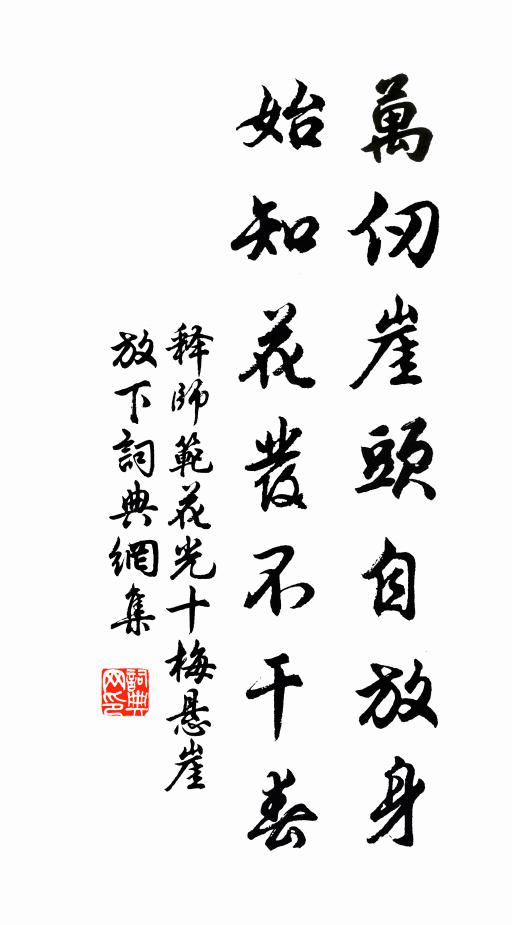 萬仞崖頭自放身
始知花發不干春
释師範花光十梅悬崖
放下詞典網集
詞典
网印